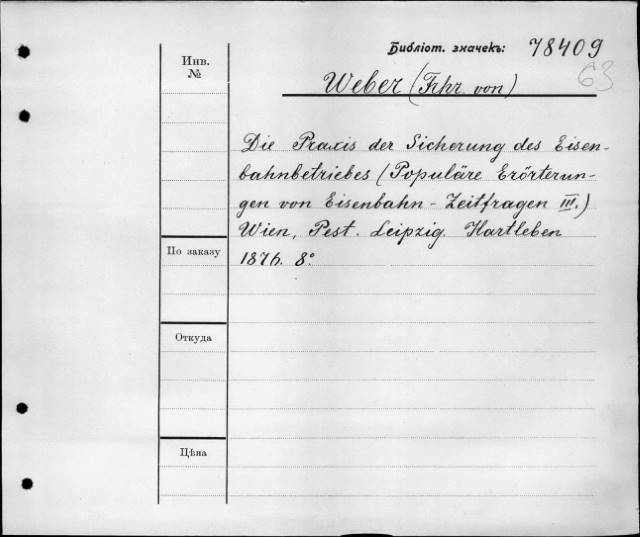 Библіот. значекъ: 78409
63
Инв.
№
Weber (Frhr. von)
Die Praxis der Sicherung des Eisen-
bahnbetriebes (Populäre Erörterun-
gen von Eisenbahn-Zeitfragen III.)
Wien, Pest. Leipzig. Hartleben
1876. 8°.
По заказу
Откуда
Цѣна